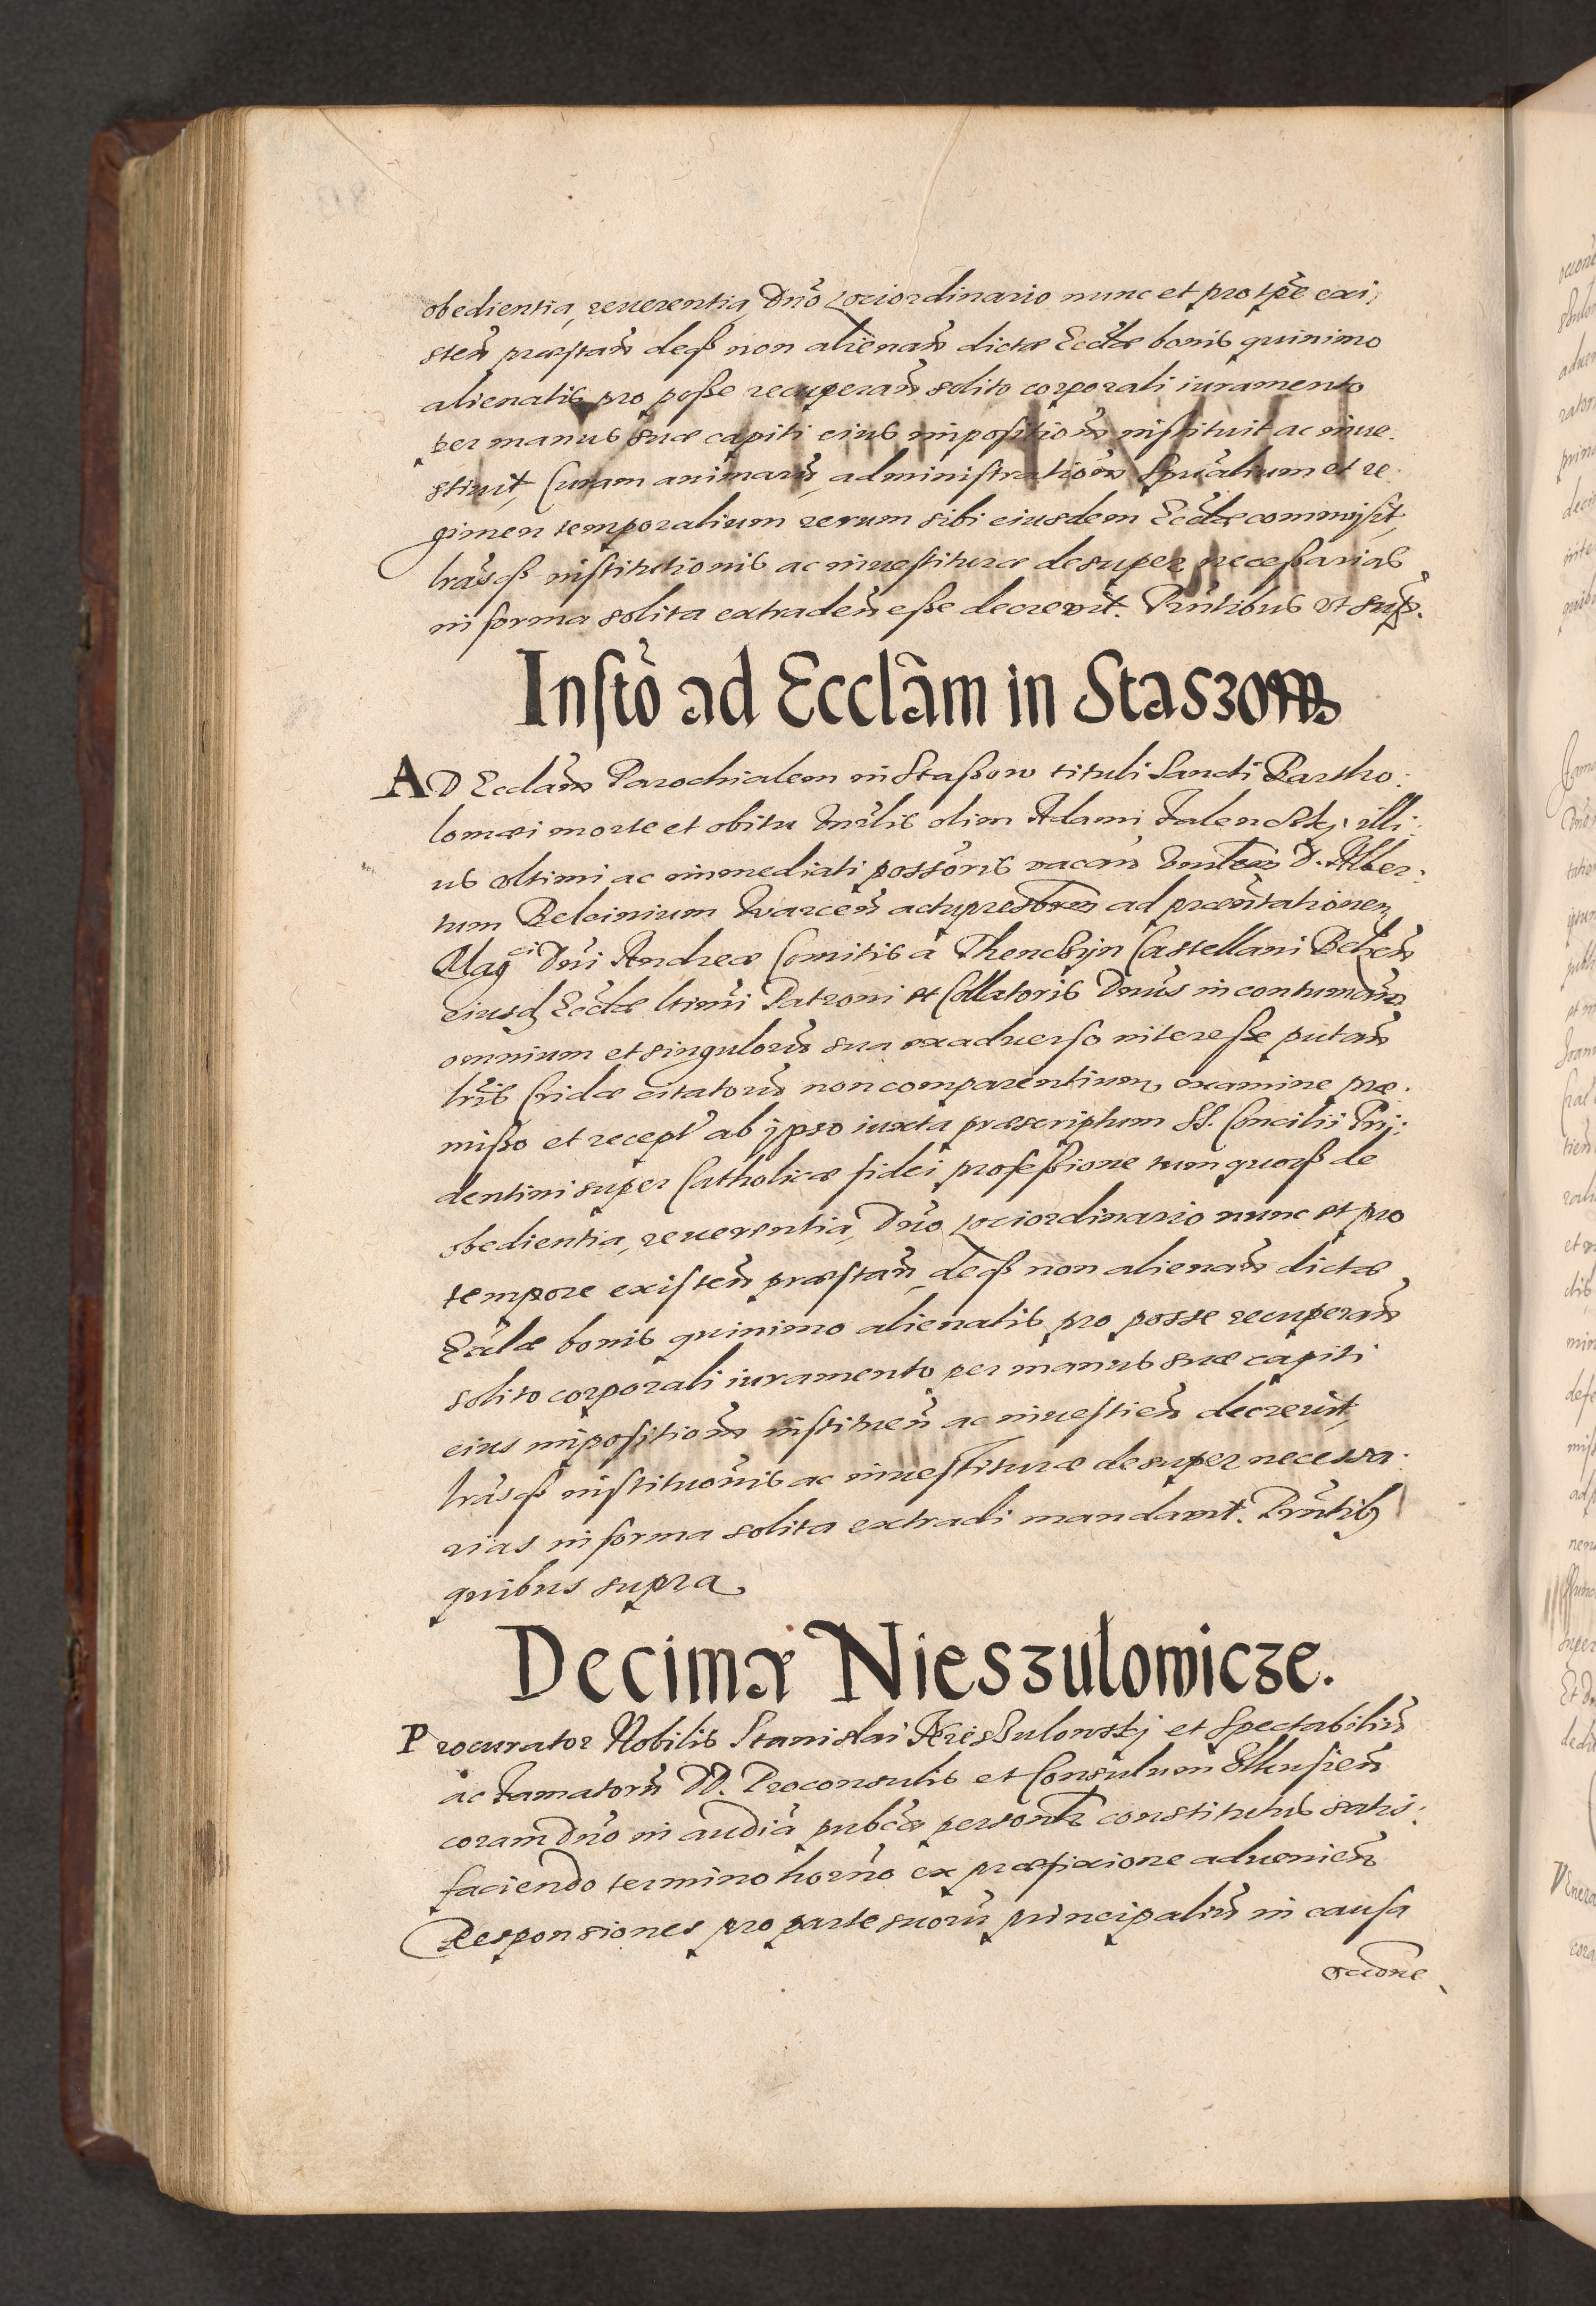 obedientia, reuerentia Dno Lociordinario nunc et pro tpre exi,
sten præstan deqз non alienan dictæ Eccliæ bonis quinimo
alienatis pro posse recuperan solito corporali iuramento
per manus suæ capiti eius impositiom instituit ac inue.
stiuit, Curam animarum, administratiom Spualium et re
gimen temporalium rerum sibi eiusdem Eccliæ commisit,
lrasqз institutionis ac inuestituræ desuper necessarias
in forma solita extraden esse decrevit. Pntibus vt sup.
Insto ad Ecclam in Staszow
AD Ecclam Parochialem in Stassow tituli Sancti Bartho:
lomæi morte et obitu Vnrlis olim Adami illi:
us vltimi ac immediati possoris vacan D. Alber:
tum actupresbrm ad præntationem
Magci Dni Andreæ Comitis a Thenczijn Castellani Belzen
eiusdз Eccliæ ltimi Patroni et Collatoris Dnus in contumam
omnium et singulorum sua ex aduerso interesse putan
lris Cridæ citatorum non comparentium, examine præ.
misso et recepta ab ipso iuxta præscriptum SS. Concilii Tri:
dentini super Catholicæ fidei professione tum quoqз de
obedientia, reuerentia, Dno Lociordinario nunc et pro
tempore existen præstan, deqз non alienan dictæ
Eccliæ bonis quinimo alienatis pro posse recuperan
solito corporali iuramento per manus suæ capiti
eius impositiom instituen ac inuestien decreuit,
lrasqз instituonis ac inuestituræ desuper necessa.
rias in forma solita extradi mandavit. Pntibз
quibus supra
Decimæ Nieszulowicze.
Procurator Nobilis Stanislai et Spectabilium
ac famatorum DD. Proconsulis et Consulum Ilkusien
coram Dno in audia publca personlr constitutus satis:
faciendo termino horno ex præfixione aduenien
Responsiones pro parte suorum principalium in causa